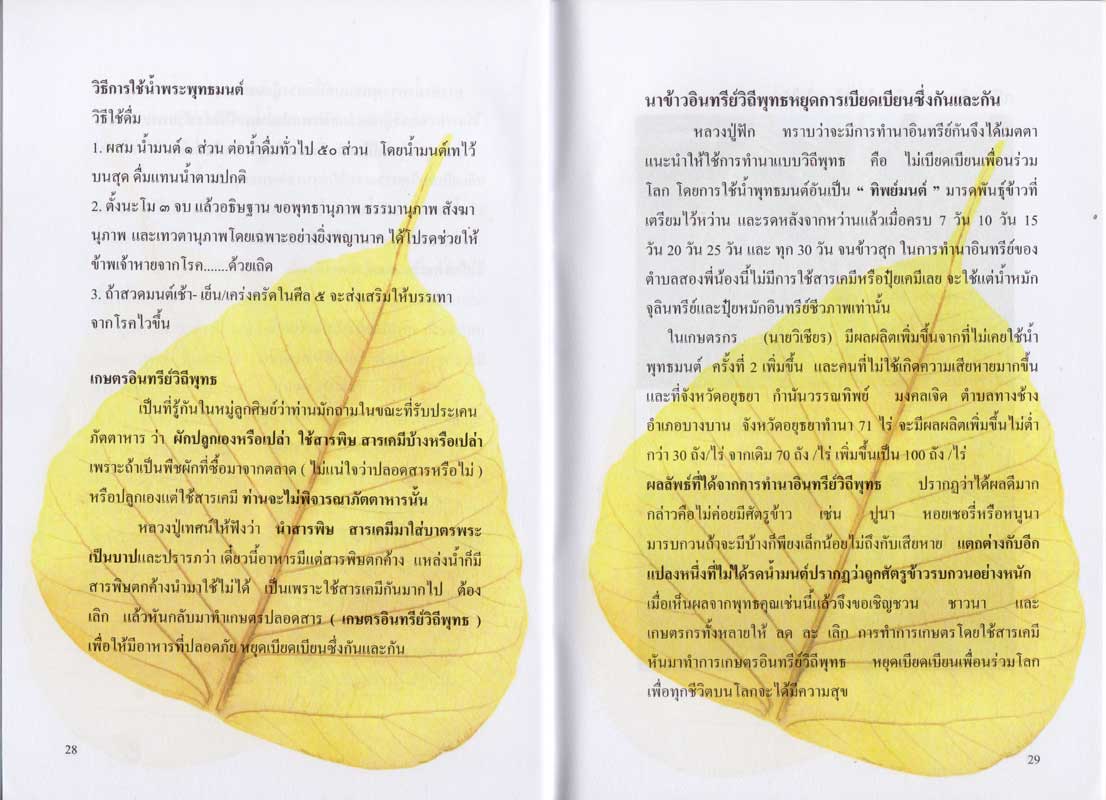 วิธีการใช้น้ำพระพุทธมนต์
วิธีใช้ดื่ม
1. ผสม น้ำมนต์ ๑ ส่วน ต่อน้ำดื่มทั่วไป ๕๐ ส่วน โดยน้ำมนต์เทไว้
บนสุด ดื่มแทนน้ำตามปกติ
2. ตั้งนะโม ๓ จบ แล้วอธิษฐาน ขอพุทธานุภาพ ธรรมานุภาพ สังฆา
นุภาพ และเทวตานุภาพโดยเฉพาะอย่างยิ่งพญานาค ได้โปรดช่วยให้
ข้าพเจ้าหายจากโรค.......ด้วยเถิด
3. ถ้าสวดมนต์เช้า- เย็น/เคร่งครัดในศีล ๕ จะส่งเสริมให้บรรเทา
จากโรคไวขึ้น
เกษตรอินทรีย์วิถีพุทธ
เป็นที่รู้กันในหมู่ลูกศิษย์ว่าท่านมักถามในขณะที่รับประเคน
ภัตตาหาร ว่า ผักปลูกเองหรือเปล่า ใช้สารพิษ สารเคมีบ้างหรือเปล่า
เพราะถ้าเป็นพืชผักที่ซื้อมาจากตลาด ( ไม่แน่ใจว่าปลอดสารหรือไม่ )
หรือปลูกเองแต่ใช้สารเคมี ท่านจะไม่พิจารณาภัตตาหารนั้น
หลวงปู่เทศน์ให้ฟังว่า นำสารพิษ สารเคมีมาใส่บาตรพระ
เป็นบาปและปรารภว่า เดี๋ยวนี้อาหารมีแต่สารพิษตกค้าง แหล่งน้ำก็มี
สารพิษตกค้างนำมาใช้ไม่ได้ เป็นเพราะใช้สารเคมีกันมากไป ต้อง
เลิก แล้วหันกลับมาทำเกษตรปลอดสาร ( เกษตรอินทรีย์วิถีพุทธ )
เพื่อให้มีอาหารที่ปลอดภัย หยุดเบียดเบียนซึ่งกันและกัน
28
นาข้าวอินทรีย์วิถีพุทธหยุดการเบียดเบียนซึ่งกันและกัน
หลวงปู่ฟัก ทราบว่าจะมีการทำนาอินทรีย์กันจึงได้เมตตา
แนะนำให้ใช้การทำนาแบบวิถีพุทธ คือ ไม่เบียดเบียนเพื่อนร่วม
โลก โดยการใช้น้ำพุทธมนต์อันเป็น “ ทิพย์มนต์ ” มารดพันธุ์ข้าวที่
เตรียมไว้หว่าน และรดหลังจากหว่านแล้วเมื่อครบ 7 วัน 10 วัน 15
วัน 20 วัน 25 วัน และ ทุก 30 วัน จนข้าวสุก ในการทำนาอินทรีย์ของ
ตำบลสองพี่น้องนี้ไม่มีการใช้สารเคมีหรือปุ๋ยเคมีเลย จะใช้แต่น้ำหมัก
จุลินทรีย์และปุ๋ยหมักอินทรีย์ชีวภาพเท่านั้น
ในเกษตรกร (นายวิเชียร) มีผลผลิตเพิ่มขึ้นจากที่ไม่เคยใช้น้ำ
พุทธมนต์ ครั้งที่ 2 เพิ่มขึ้น และคนที่ไม่ใช้เกิดความเสียหายมากขึ้น
และที่จังหวัดอยุธยา กำนันวรรณทิพย์ มงคลเจิด ตำบลทางช้าง
อำเภอบางบาน จังหวัดอยุธยาทำนา 71 ไร่ จะมีผลผลิตเพิ่มขึ้นไม่ต่ำ
กว่า 30 ถัง/ไร่ จากเดิม 70 ถัง /ไร่ เพิ่มขึ้นเป็น 100 ถัง /ไร่
ผลลัพธ์ที่ได้จากการทำนาอินทรีย์วิถีพุทธ ปรากฏว่าได้ผลดีมาก
กล่าวคือไม่ค่อยมีศัตรูข้าว เช่น ปูนา หอยเชอรี่หรือหนูนา
มารบกวนถ้าจะมีบ้างก็พียงเล็กน้อยไม่ถึงกับเสียหาย แตกต่างกับอีก
แปลงหนึ่งที่ไม่ได้รดน้ำมนต์ปรากฏว่าถูกศัตรูข้าวรบกวนอย่างหนัก
เมื่อเห็นผลจากพุทธคุณเช่นนี้แล้วจึงขอเชิญชวน ชาวนา และ
เกษตรกรทั้งหลายให้ ลด ละ เลิก การทำการเกษตรโดยใช้สารเคมี
หันมาทำการเกษตรอินทรีย์วิถีพุทธ หยุดเบียดเบียนเพื่อนร่วมโลก
เพื่อทุกชีวิตบนโลกจะได้มีความสุข
29